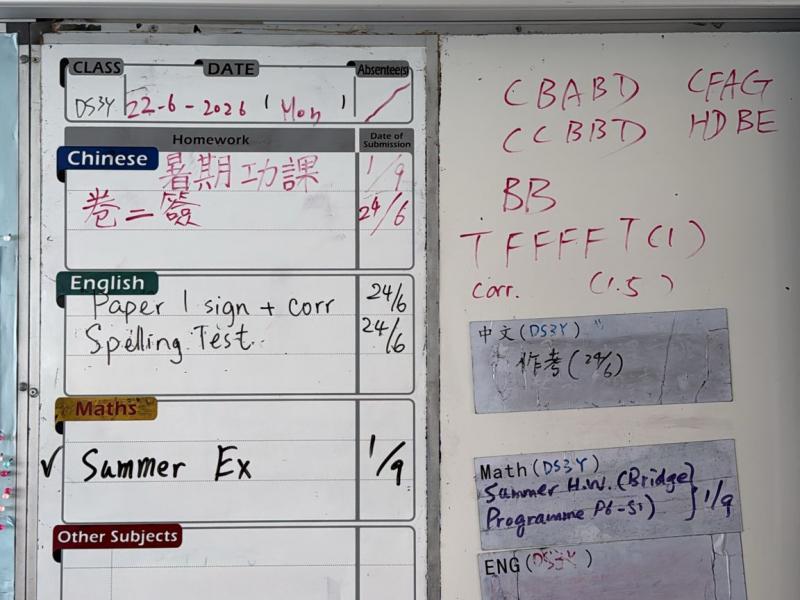 CLASS DATE Absentee(s)
DS3Y 22-6-2026 ( Mon )
Homework Date of Submission
Chinese
暑期功課 1/9
卷二簽 24/6
English
Paper 1 sign + corr 24/6
Spelling Test 24/6
Maths
✓ Summer Ex 1/9
Other Subjects
CBABD CFAG
CCBBD HDBE
BB
TFFFFT(1)
corr. (1.5)
中文(DS3Y)
作考(24/6)
Math(DS3Y)
Summer H.W. (Bridge
Programme P6-S1) } 1/9
ENG(DS3Y)